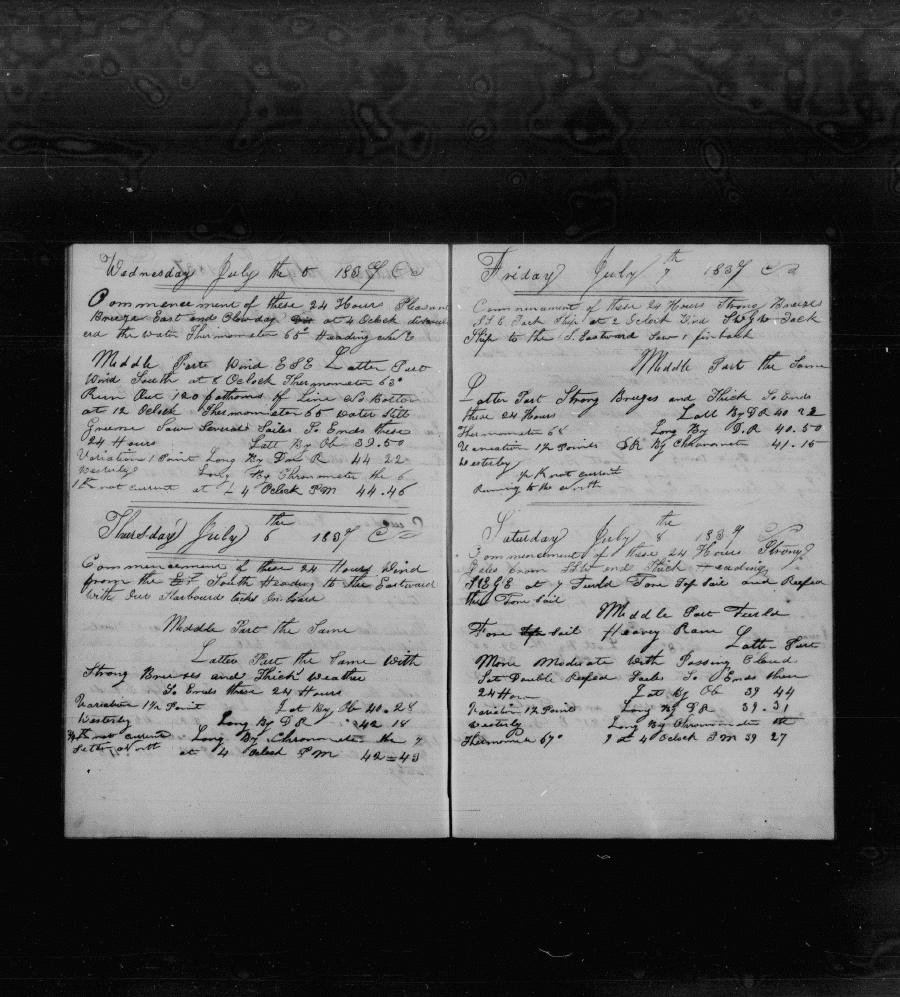 Wednesday July the 5 1837
Commencement of these 24 Hours Pleasant
Breeze East and Clowday at 4 Oclock
the water Thermometer 65° Heading
Meddle Parte Wind ESE Latter Part
Wind South at 8 Oclock Thermometer 63°
Run Out 120 fathoms of Line No Bottom
at 12 Oclock Thermometer 65 Water Still
Greene Saw Several Sailes So Ends these
24 Hours Latt By Ob 39.50
Variation 1 Point Long By D R 44.22
Westerly Long By Chronometer the 6
1 K not current at 4 Oclock PM 44.46
Thursday July the 6 1837
Commencement of these 24 Hours Wind
from the South Heading to the Eastward
With Our Harboard tacks Onboard
Meddle Part the Same
Latter Part the Same With
Strong Breeses and Thick Weather
So Ends these 24 Hours
Variation 1½ Point Lat By Ob 40.28
Westerly Long By D R 42.18
K not current Long By Chronometer the 7
Setten North at 4 Oclock PM 42=43
Friday July 7th 1837
Commencement of these 24 Hours Strong Breezes
SSE Tack Ship at 2 Oclock Wind Tack
Ship to the S. Eastward Saw 1 finback
Meddle Part the Same
Latter Part Strong Breezes and Thick So Ends
these 24 Hours Latt By DR 40 22
Thermometer 68 Long By D.R 40.50
Variation 1½ Points By Chronometer 41.15
Westerly
K not current
Running to the north
Saturday July the 8 1837
Commencement of these 24 Hours Strong
Gales from SSW and Thick Heading
at 7 Furld Fore Top Sail and Reefed
the Fore Sail
Meddle Part Furld
Fore Sail Heavey Rain Latter Part
More Moderate With Passing Cloud
Set Double Reefed Sailes So Ends these
24 Hour Lat By Ob 39 44
Variation 1½ Point Long By D R 39.31
Westerly Long By Chronometer the
Thermometer 67° 9 at 4 Oclock PM 39 27